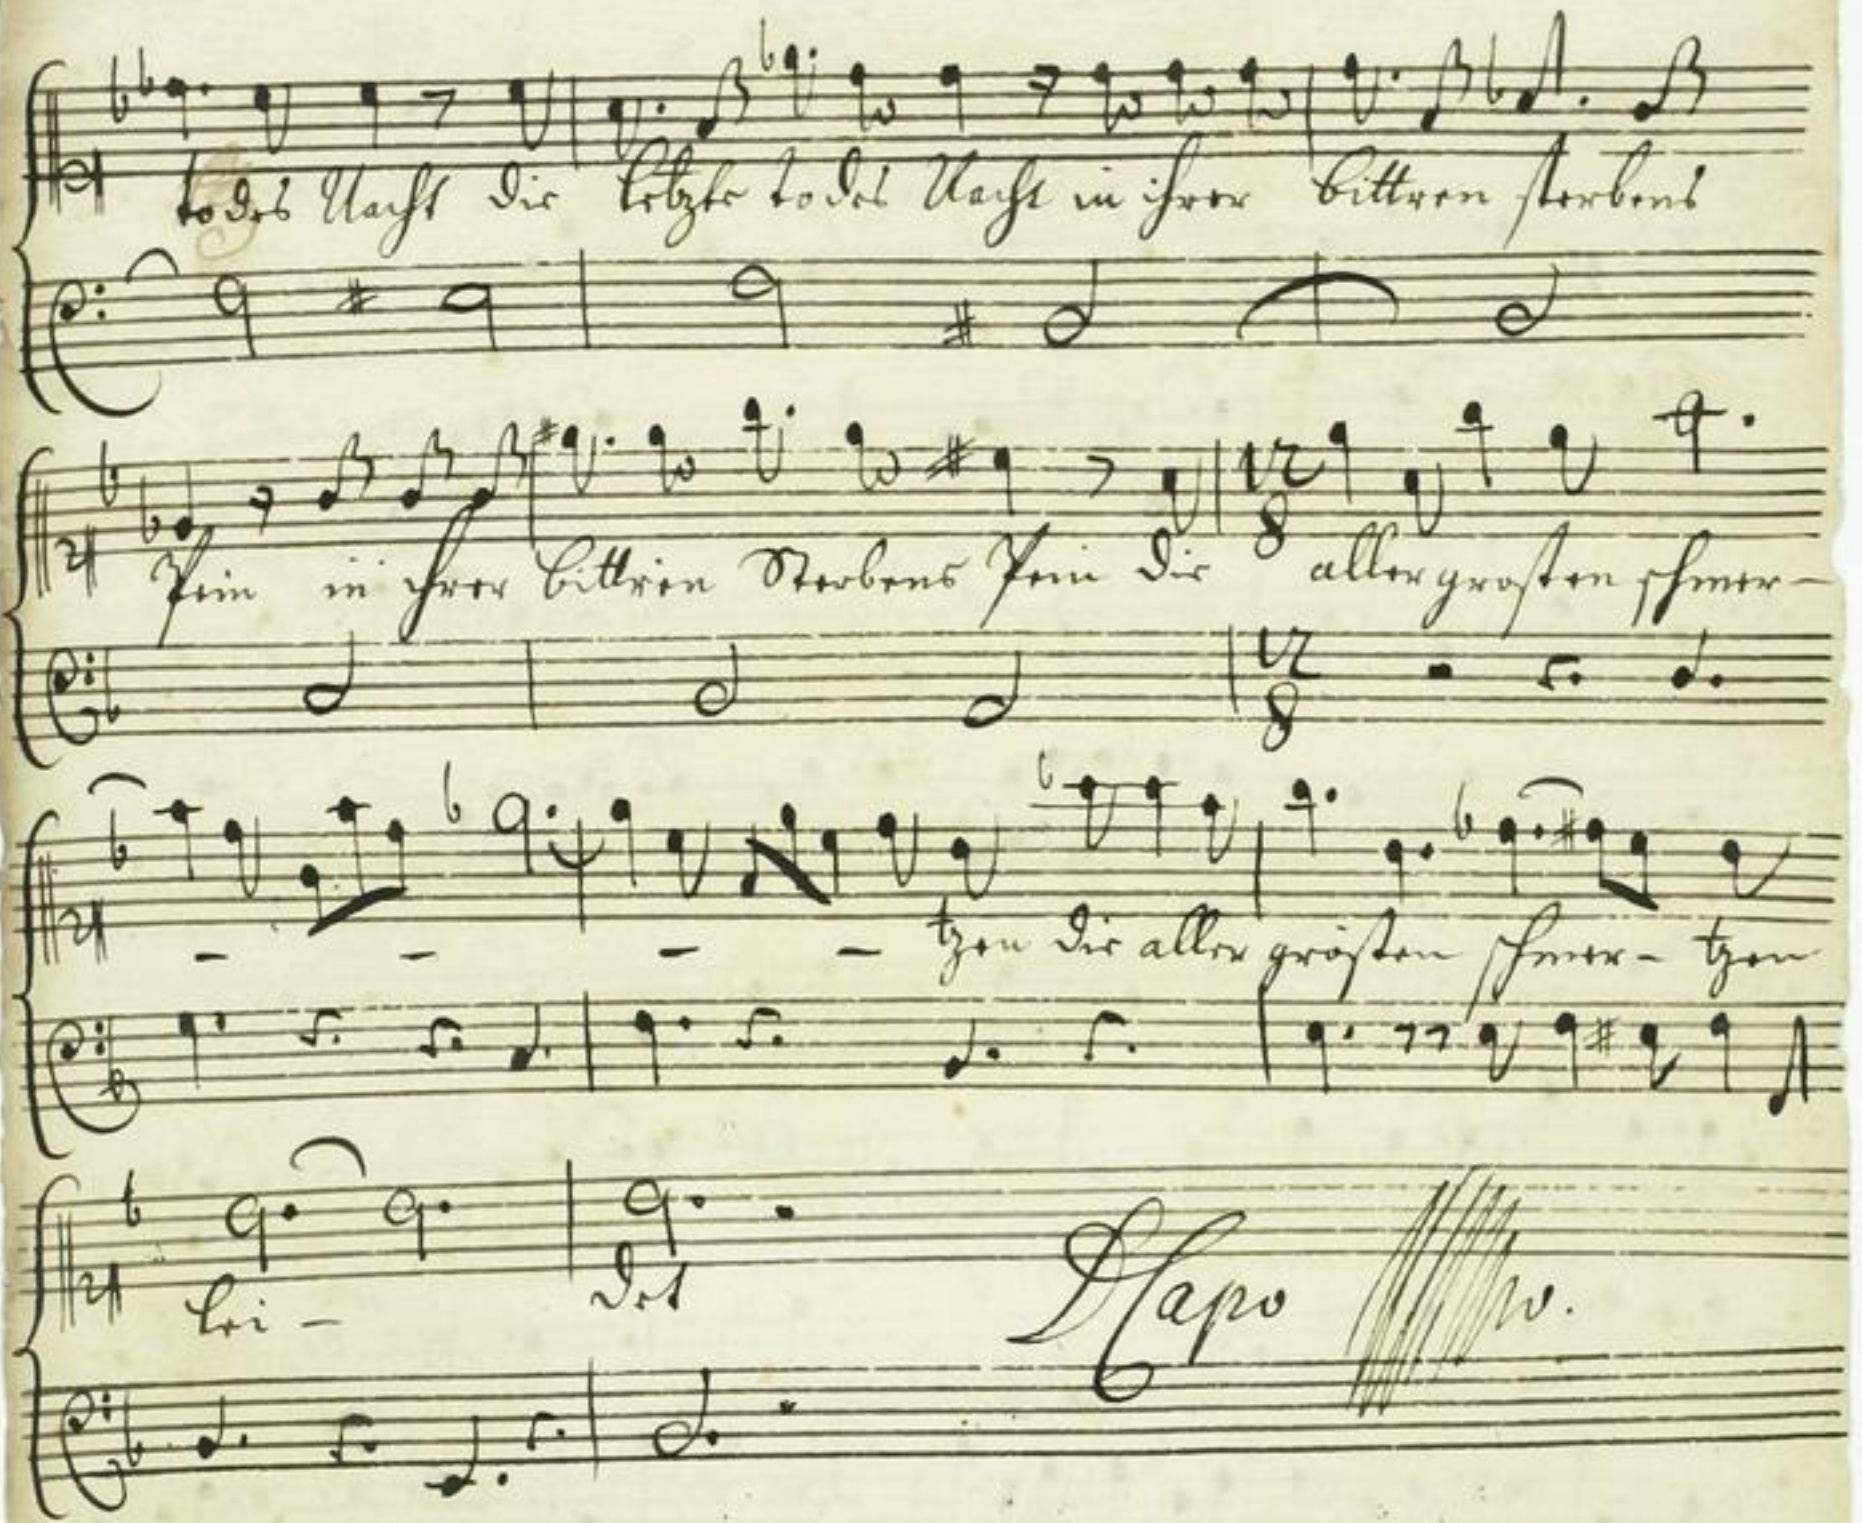 todes Nacht die letzte todes Nacht in ihrer bittren sterbens
Pein in ihrer bittren Sterbens Pein die aller grosten schmer-
- - - - tzen die aller grösten schmer- tzen
lei- det
D Capo